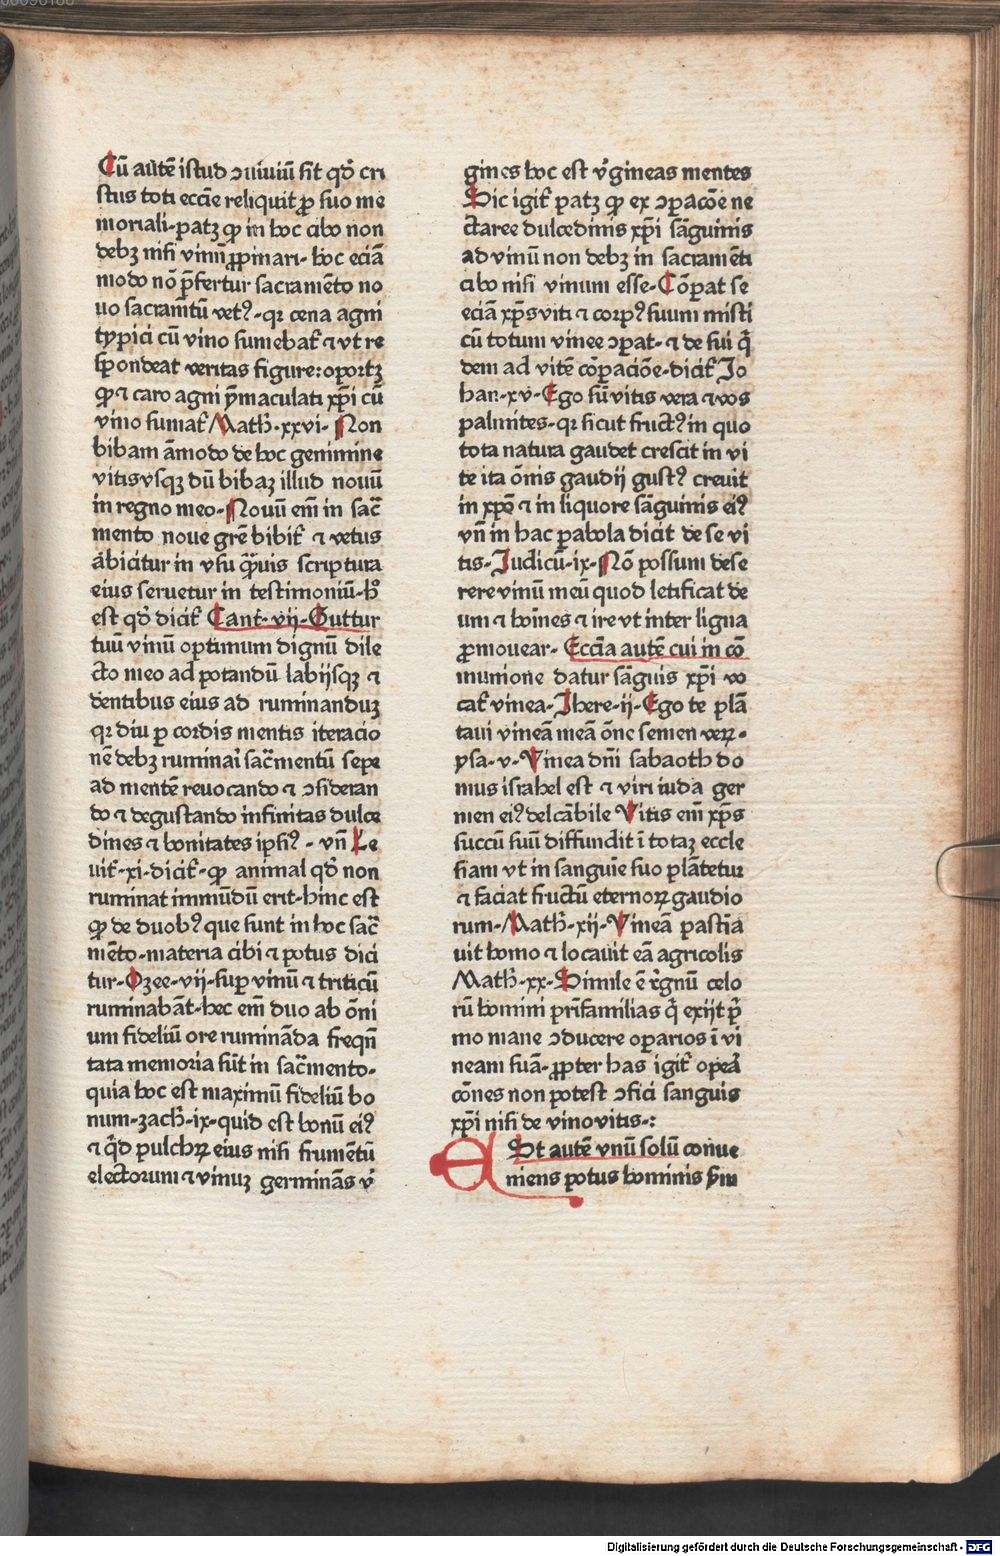 Cū autē istud ↄuiuiū sit qd̓ cri
stus toti eccīe reliquit ꝓ suo me
moriali·patꝫ ꝙ in hoc cibo non
debꝫ nisi vinū ꝓpinari·hoc eciā
modo nō p̄fertur sacramēto no
uo sacramtū vetꝰ·qꝛ cena agni
typici cū vino sumebat᷑ ⁊ vt re
spondeat veritas figure:oportꝫ
ꝙ ⁊ caro agni ymaculati xp̄i cū
vino sumat᷑ Math̓·xxvi·Non
bibam āmodo de hoc genimine
vitis vsqꝫ dū bibaꝫ illud nouū
in regno meo·Nouū em̄ in sac̄
mento noue gr̄e bibit᷑ ⁊ vetus
abicitur in vsu q̄uis scriptura
eius seruetur in testimoniū·h̓
est qd̓ dicit᷑ Cant·vij·Guttur
tuū vinū optimum dignū dile
cto meo ad potandū labijsqꝫ ⁊
dentibus eius ad ruminanduꝫ
qꝛ diu ꝑ cordis mentis iteracio
nē debꝫ ruminari sac̄mentū sepe
ad mentē reuocando ⁊ ↄsideran
do ⁊ degustando infinitas dulce
dines ⁊ bonitates ipsiꝰ·vn̄ Le
uit᷑·xi·dicit᷑·ꝙ animal qd̓ non
ruminat immūdū erit·hinc est
ꝙ de duobꝰ que sunt in hoc sac̄
mēto·materia cibi ⁊ potus dici
tur·Ozee·vij·suꝑ vinū ⁊ triticū
ruminabāt·hec em̄ duo ab ōni
um fideliū ore rumināda freqn̄
tata memoria sūt in sac̄mento·
quia hoc est maximū fideliū bo
num·zach̓·ix·quid est bonū eiꝰ
⁊ qd̓ pulchꝝ eius nisi frumētū
electorum ⁊ vinuꝫ germinās v̓
gines hoc est v̓gineas mentes
Sic igit᷑ patꝫ ꝙ ex ↄꝑacōe ne
ctaree dulcedinis xp̄i sāguinis
ad vinū non debꝫ in sacramēti
cibo nisi vinum esse·Cōꝑat se
eciā xp̄s viti ⁊ corpꝰ suum misti
cū totum vinee ↄꝑat·⁊ de sui q̄
dem ad vitē cōꝑacióe·dicit᷑ Jo
han·xv·Ego sū vitis vera ⁊ vos
palmites·qꝛ sicut fructꝰ in quo
tota natura gaudet crescit in vi
te ita ōnis gaudij gustꝰ creuit
in xpō ⁊ in liquore sāguinis eiꝰ
vn̄ in hac ꝑabola dicit de se vi
tis·Judicū·ix·Nō possum dese
rere vinū meū quod letificat de
um ⁊ hoīnes ⁊ ire vt inter ligna
ꝓmouear·Eccīa autē cui in cō
munione datur sāguis xp̄i vo
cat᷑ vinea·Jhere·ij·Ego te plā
taui vineā meā ōne semen veꝝ·
ysa·v·Vinea dn̄i sabaoth do
mus israhel est ⁊ viri iuda ger
men eiꝰ delc̄abile Vitis em̄ xp̄s
succū suū diffundit ī totaꝫ eccle
siam vt in sanguīe suo plātetur
⁊ faciat fructū eternoꝝ gaudio
rum·Math̓·xij·Vineā pastīa
uit homo ⁊ locauit eā agricolis
Math̓·xx·Simile ē r̓gnū celo
rū homini pr̄isfamilias q̓ exijt p̓
mo mane ↄducere oꝑarios ī vi
neam suā·ꝓpter has igit᷑ oꝑeā
cōnes non potest ↄfici sanguis
xp̄i nisi de vino vitis·:
ESt autē vnū solū conue
niens potus hominis p̄m
Digitalisierung gefördert durch die Deutsche Forschungsgemeinschaft - DFG